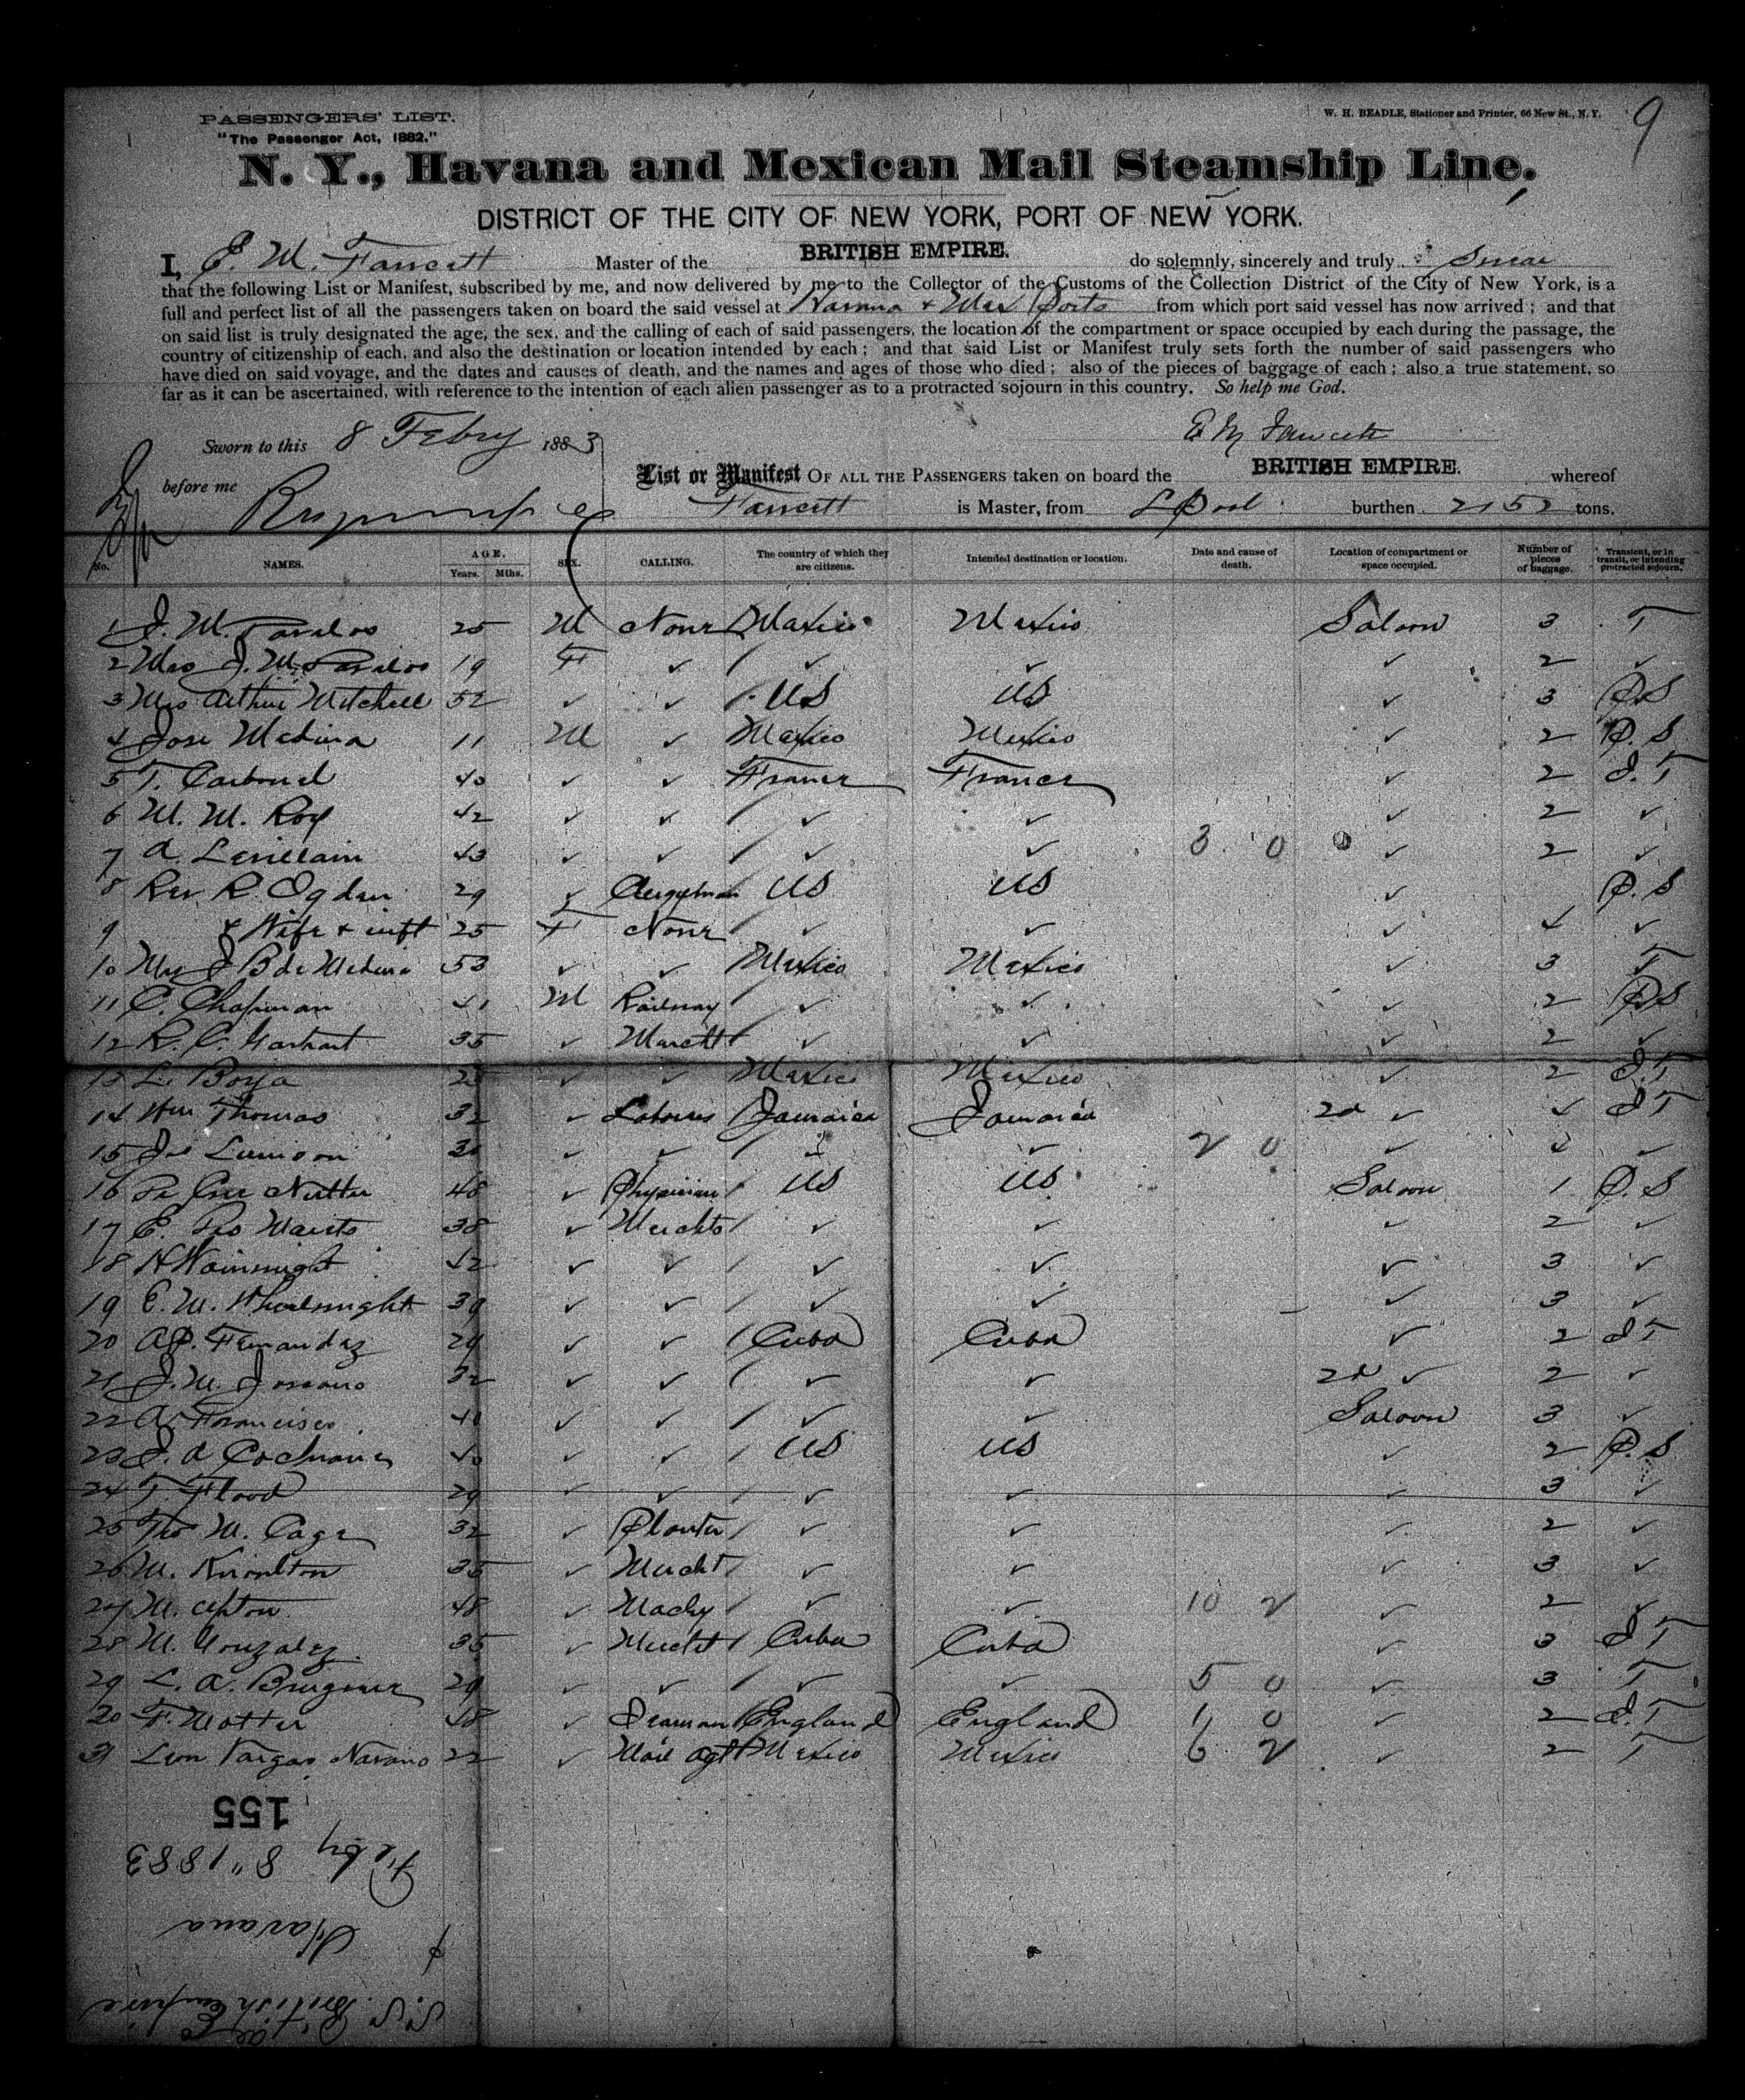 9
PASSENGERS' LIST.
"The Passenger Act, 1882."
W. H. BEADLE, Stationer and Printer, 66 New St., N. Y.
N. Y., Havana and Mexican Mail Steamship Line.
DISTRICT OF THE CITY OF NEW YORK, PORT OF NEW YORK.
I, E. M. Fawcett Master of the BRITISH EMPIRE. do solemnly, sincerely and truly Swear
that the following List or Manifest, subscribed by me, and now delivered by me to the Collector of the Customs of the Collection District of the City of New York, is a
full and perfect list of all the passengers taken on board the said vessel at Havana + Mex Ports from which port said vessel has now arrived; and that
on said list is truly designated the age, the sex, and the calling of each of said passengers, the location of the compartment or space occupied by each during the passage, the
country of citizenship of each, and also the destination or location intended by each; and that said List or Manifest truly sets forth the number of said passengers who
have died on said voyage, and the dates and causes of death, and the names and ages of those who died; also of the pieces of baggage of each; also a true statement, so
far as it can be ascertained, with reference to the intention of each alien passenger as to a protracted sojourn in this country. So help me God.
E M Fawcett
Sworn to this 8 Febry 1883
before me
List or Manifest OF ALL THE PASSENGERS taken on board the BRITISH EMPIRE. whereof
Fawcett is Master, from L Pool burthen 2152 tons.
No. NAMES. AGE. Years. Mths. SEX. CALLING. The country of which they are citizens. Intended destination or location. Date and cause of death. Location of compartment or space occupied. Number of pieces of baggage. Transient, or in transit, or intending protracted sojourn.
1 J. M. 25 M None Mexico Mexico Saloon 3 T
2 Mrs J. M. 19 F ✓ ✓ ✓ ✓ 2 ✓
3 Mrs Arthur Mitchell 52 ✓ ✓ US US ✓ 3 P.S
4 Jose Medina 11 M ✓ Mexico Mexico ✓ 2 P.S
5 T. 40 ✓ ✓ France France ✓ 2 I.T
6 M. M. Roy 42 ✓ ✓ ✓ ✓ ✓ 2 ✓
7 A. 43 ✓ ✓ ✓ ✓ 3 0 ✓ 2 ✓
8 Rev R. Ogden 29 ✓ Clergyman US US ✓ P.S
9 & Wife + inft 25 F None ✓ ✓ ✓ 4 ✓
10 Mrs J B de Medina 53 ✓ ✓ Mexico Mexico ✓ 3 T
11 C. Chapman 41 M Railway ✓ ✓ ✓ 2 P.S
12 R. C. 35 ✓ Marcht ✓ ✓ ✓ 2 ✓
13 L. Borja ✓ ✓ Mexico Mexico ✓ 2 I.T
14 Wm Thomas 32 ✓ Laborers Jamaica Jamaica 2d ✓ 4 I T
15 ✓ ✓ ✓ ✓ 2 0 ✓ 4 ✓
16 48 ✓ Physician US US Saloon 1 P.S
17 E. Geo 38 ✓ Merchts ✓ ✓ ✓ 2 ✓
18 H Wainwright 42 ✓ ✓ ✓ ✓ ✓ 3 ✓
19 E. M. Wheelwright 39 ✓ ✓ ✓ ✓ ✓ 3 ✓
20 A P. Fernandez 29 ✓ ✓ Cuba Cuba ✓ 2 I T
21 J. M. 32 ✓ ✓ ✓ ✓ 2d ✓ 2 ✓
22 A. Francisco 40 ✓ ✓ ✓ ✓ Saloon 3 ✓
23 J. A Cochrane ✓ ✓ US US ✓ 2 P.S
24 T Flood 29 ✓ ✓ ✓ ✓ ✓ 3 ✓
25 Tho M. Cage 32 ✓ Planter ✓ ✓ ✓ 2 ✓
26 M. Knowlton 35 ✓ Mercht ✓ ✓ ✓ 3 ✓
27 M. Upton 48 ✓ Machy ✓ ✓ 10 2 ✓ 2 ✓
28 M. Gonzalez 35 ✓ Mercht Cuba Cuba ✓ 3 I T
29 L. A. 29 ✓ ✓ ✓ ✓ 5 0 ✓ 3 T
30 F. 48 ✓ Seaman England England 1 0 ✓ 2 I.T
31 Leon Vargas Navano 22 ✓ Mail agt Mexico Mexico 6 2 ✓ 2 T
155
Feby 8" 1883
Havana
S.S. British Empire